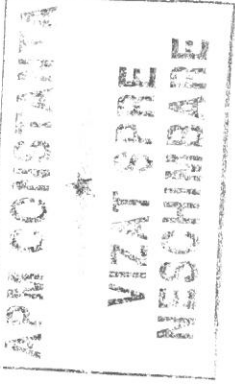 APM CONSTANTA
VIZAT SPRE
NESCHIMBARE